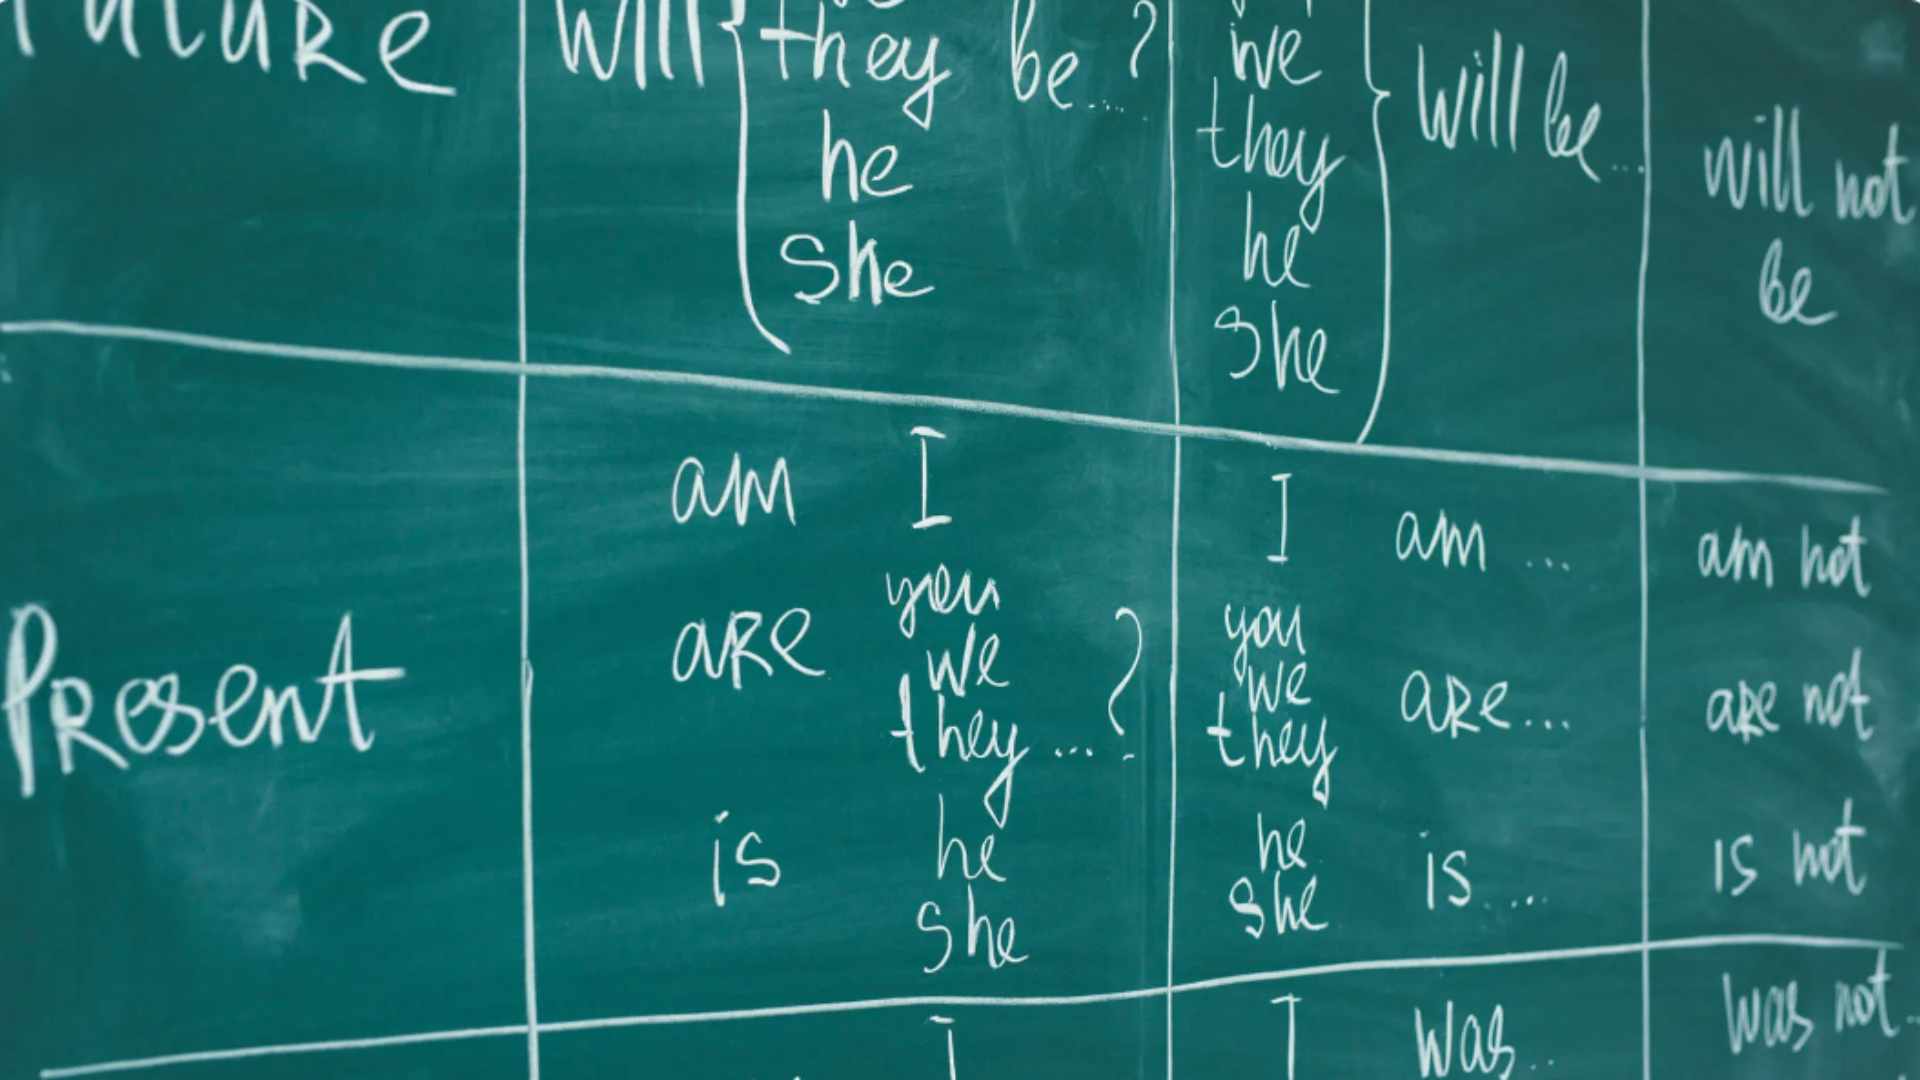 Future
will { they be...?
he
she
we
they
he
she
} will be...
will not
be
Present
am I
are you
we
they ...?
is he
she
I am ...
you
we are...
they
he is....
she
am not
are not
is not
I
I was...
was not...